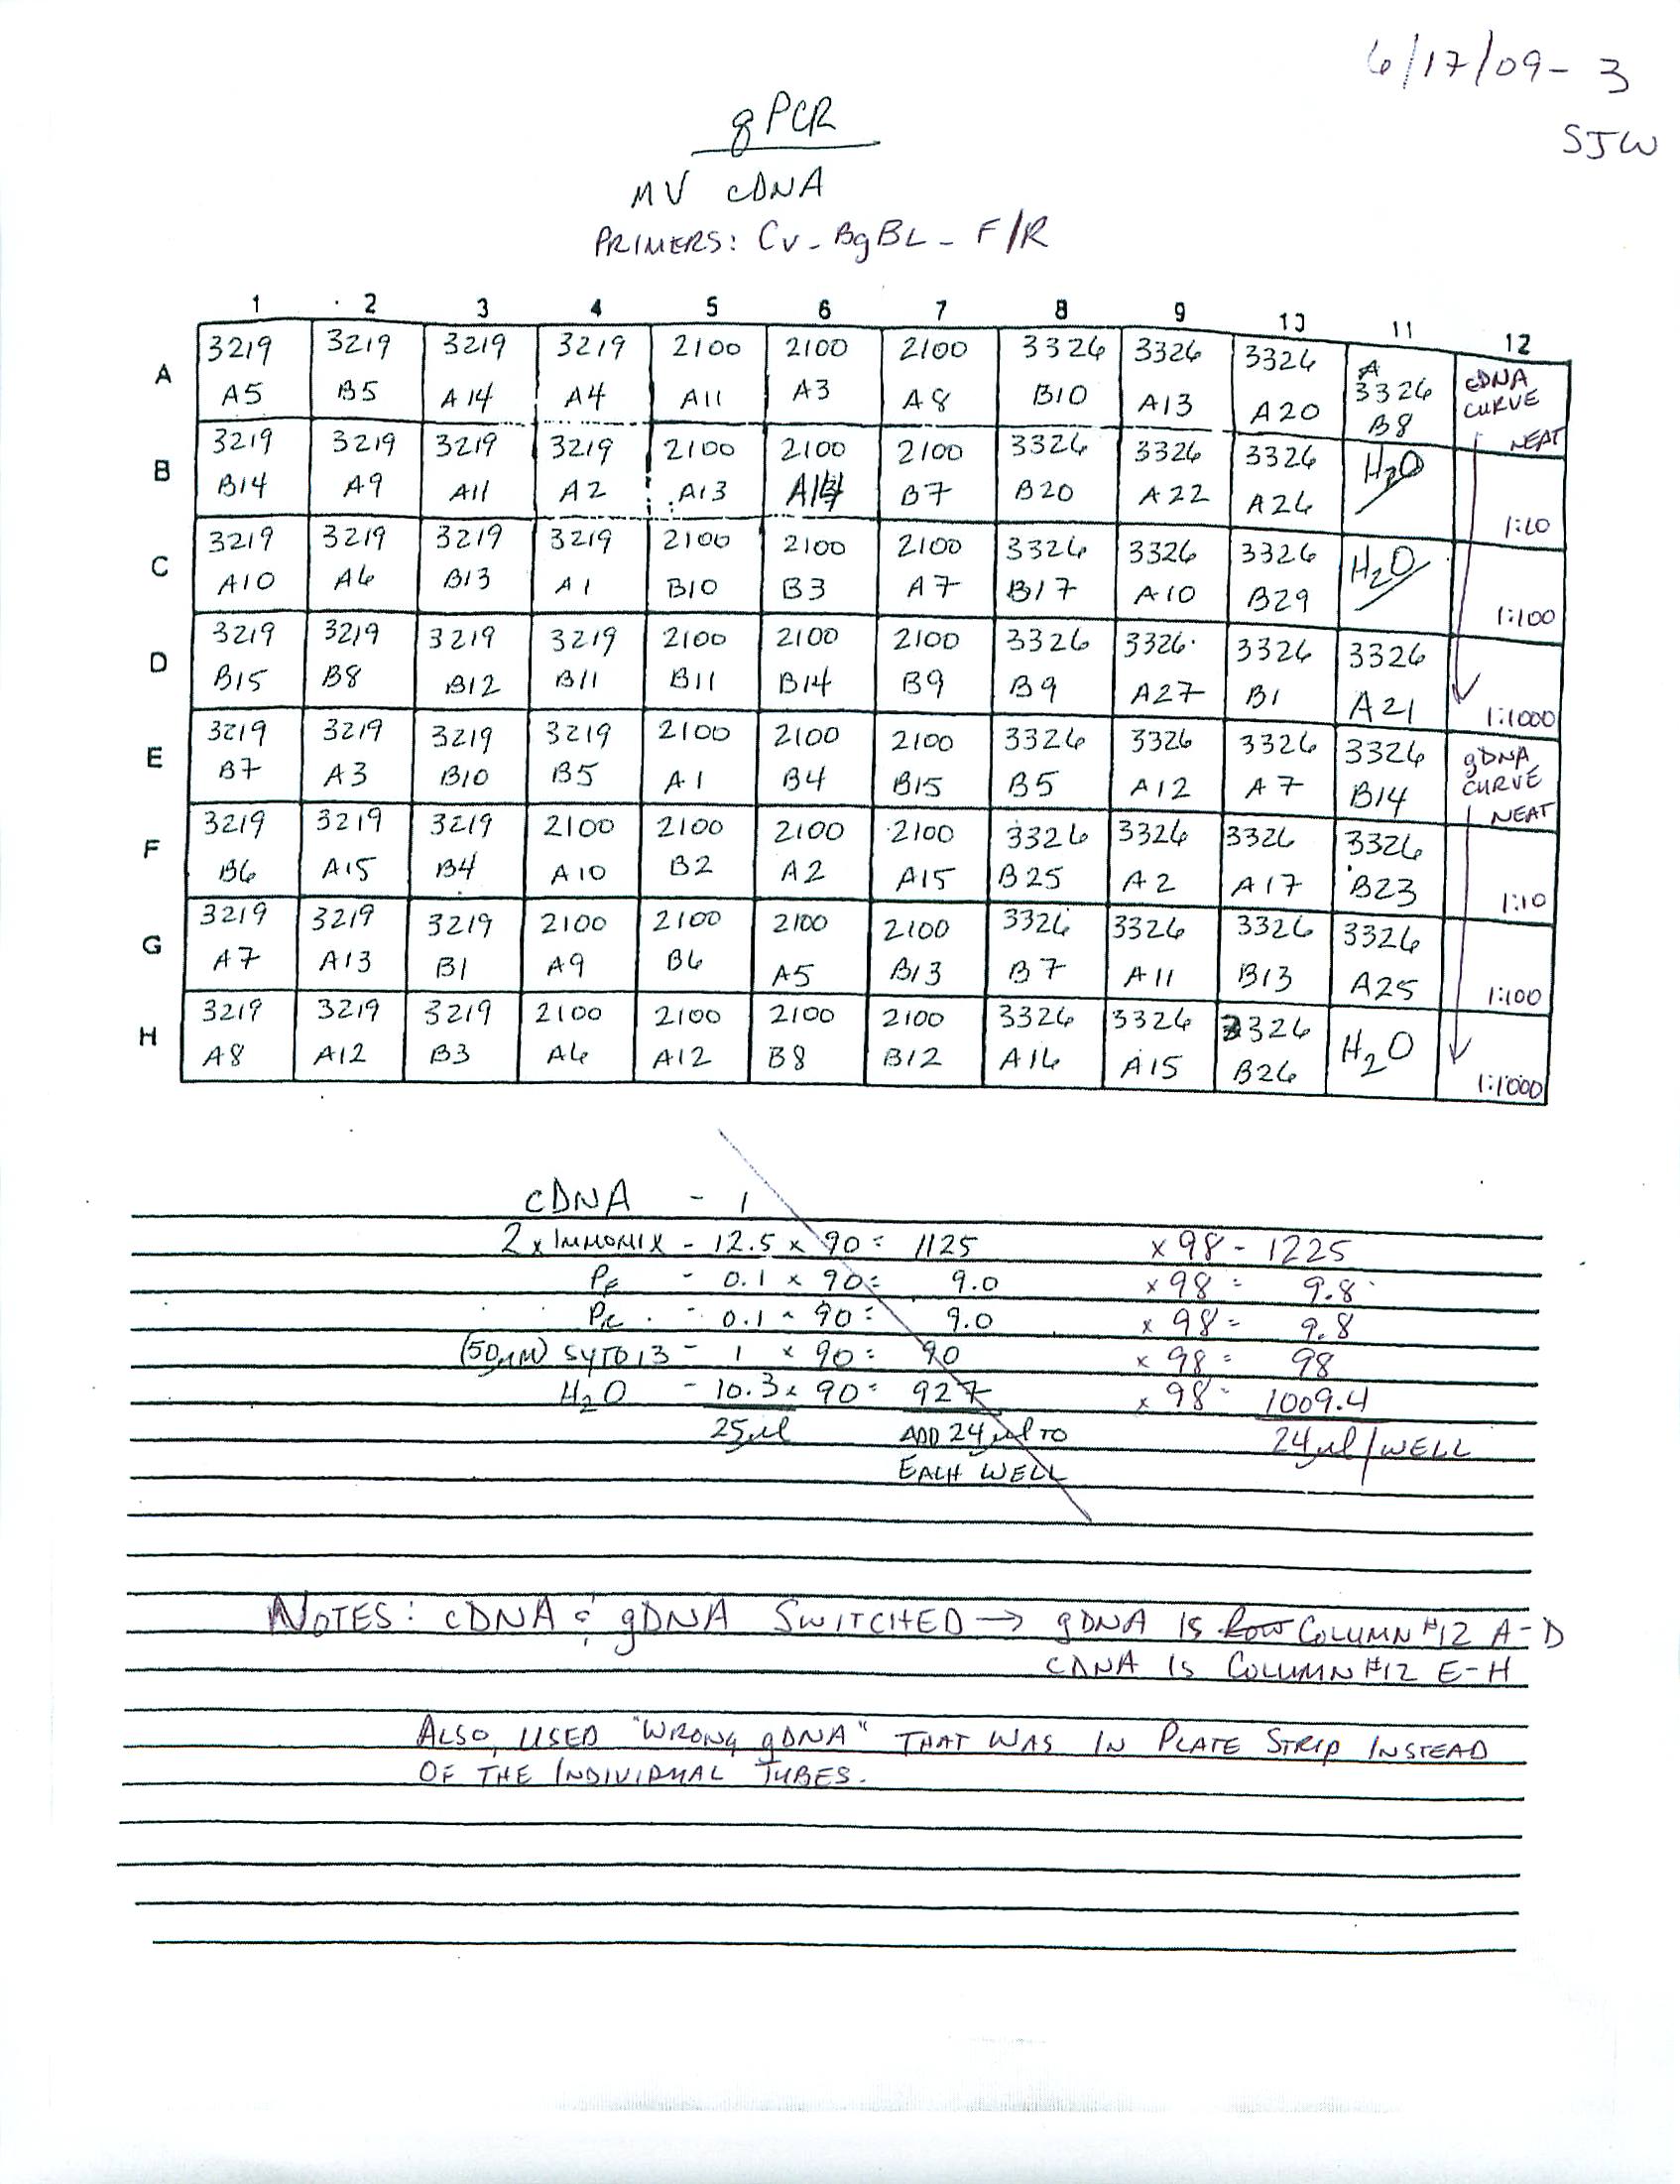 6/17/09-3
SJW
qPCR
MV cDNA
PRIMERS: Cv-BgBL-F/R
1 2 3 4 5 6 7 8 9 10 11 12
A 3219 3219 3219 3219 2100 2100 2100 3326 3326 3326 3326 cDNA CURVE
A5 B5 A14 A4 A11 A3 A8 B10 A13 A20 B8 NEAT
B 3219 3219 3219 3219 2100 2100 2100 3326 3326 3326 H2O
B14 A9 A11 A2 A13 B7 B20 A22 A26 1:10
C 3219 3219 3219 3219 2100 2100 2100 3326 3326 3326 H2O
A10 A6 B13 A1 B10 B3 A7 B17 A10 B29 1:100
D 3219 3219 3219 3219 2100 2100 2100 3326 3326 3326 3326
B15 B8 B12 B11 B11 B14 B9 B9 A27 B1 A21 1:1000
E 3219 3219 3219 3219 2100 2100 2100 3326 3326 3326 3326 gDNA CURVE
B7 A3 B10 B5 A1 B4 B15 B5 A12 A7 B14 NEAT
F 3219 3219 3219 2100 2100 2100 2100 3326 3326 3326 3326
B6 A15 B4 A10 B2 A2 A15 B25 A2 A17 B23 1:10
G 3219 3219 3219 2100 2100 2100 2100 3326 3326 3326 3326
A7 A13 B1 A9 B6 A5 B13 B7 A11 B13 A25 1:100
H 3219 3219 3219 2100 2100 2100 2100 3326 3326 3326 H2O
A8 A12 B3 A6 A12 B8 B12 A16 A15 B26 1:1000
cDNA - 1
2x IMMOMIX - 12.5 x 90 = 1125 x 98 - 1225
PF - 0.1 x 90 = 9.0 x 98 = 9.8
PR - 0.1 x 90 = 9.0 x 98 = 9.8
(50µM) SYTO13 - 1 x 90 = 90 x 98 = 98
H2O - 10.3 x 90 = 927 x 98 = 1009.4
25µl ADD 24µl TO 24µl/WELL
EACH WELL
NOTES: cDNA & gDNA SWITCHED → gDNA IS ROW COLUMN #12 A-D
cDNA IS COLUMN #12 E-H
ALSO, USED "WRONG gDNA" THAT WAS IN PLATE STRIP INSTEAD
OF THE INDIVIDUAL TUBES.